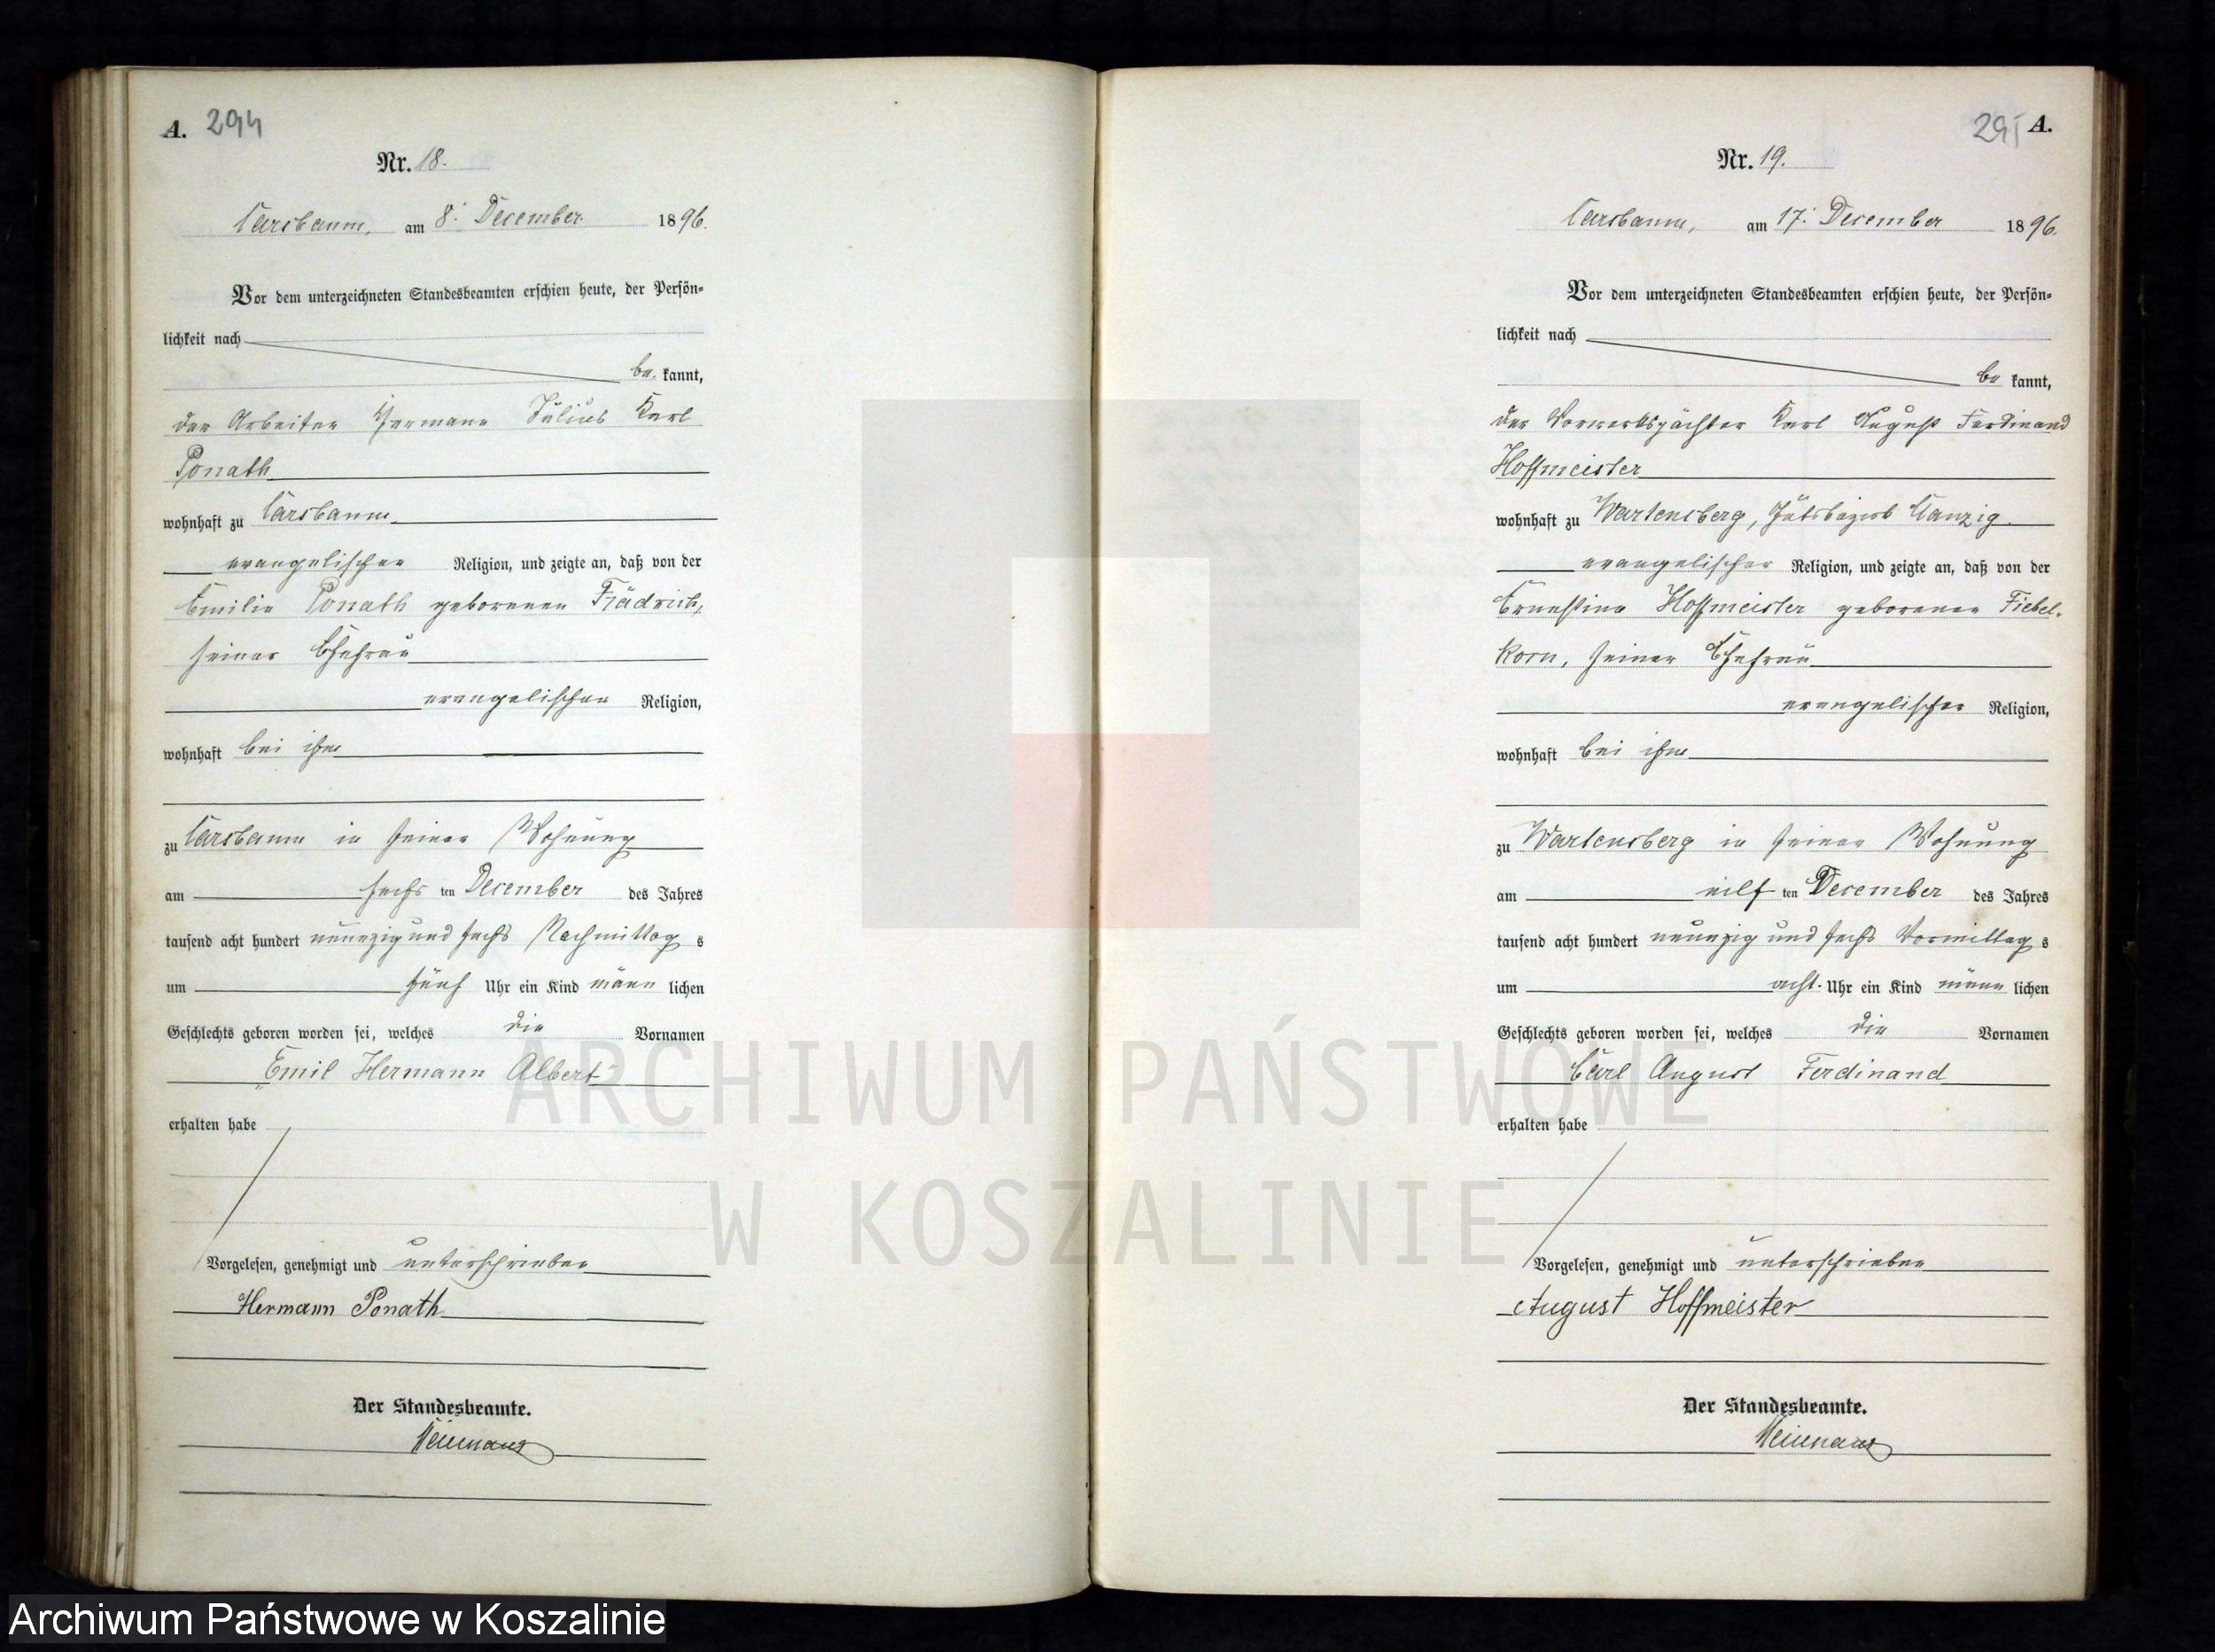 A. 294
Nr. 18.
Carsbaum, am 8. December 1896.
Vor dem unterzeichneten Standesbeamten erschien heute, der Persön=
lichkeit nach
be kannt,
der Arbeiter Hermann Julius Karl
Ponath
wohnhaft zu Carsbaum
evangelischer Religion, und zeigte an, daß von der
Emilie Ponath geborenen Frädrich,
seiner Ehefrau
evangelischer Religion,
wohnhaft bei ihm
zu Carsbaum in seiner Wohnung
am sechs ten December des Jahres
tausend acht hundert neunzig und sechs Nachmittag s
um fünf Uhr ein Kind männ lichen
Geschlechts geboren worden sei, welches die Vornamen
„Emil Hermann Albert“
erhalten habe
Vorgelesen, genehmigt und unterschrieben
Hermann Ponath
Der Standesbeamte.
295 A.
Nr. 19.
Carsbaum, am 17. December 1896.
Vor dem unterzeichneten Standesbeamten erschien heute, der Persön=
lichkeit nach
be kannt,
der Vorwerkspächter Karl August Ferdinand
Hoffmeister
wohnhaft zu Wartensberg, Gutsbezirk Ganzig
evangelischer Religion, und zeigte an, daß von der
Ernestine Hoffmeister geborenen Fiebel=
korn, seiner Ehefrau
evangelischer Religion,
wohnhaft bei ihm
zu Wartensberg in seiner Wohnung
am eilf ten December des Jahres
tausend acht hundert neunzig und sechs Vormittag s
um acht Uhr ein Kind männ lichen
Geschlechts geboren worden sei, welches die Vornamen
Carl August Ferdinand
erhalten habe
Vorgelesen, genehmigt und unterschrieben
August Hoffmeister
Der Standesbeamte.
ARCHIWUM PAŃSTWOWE
W KOSZALINIE
Archiwum Państwowe w Koszalinie